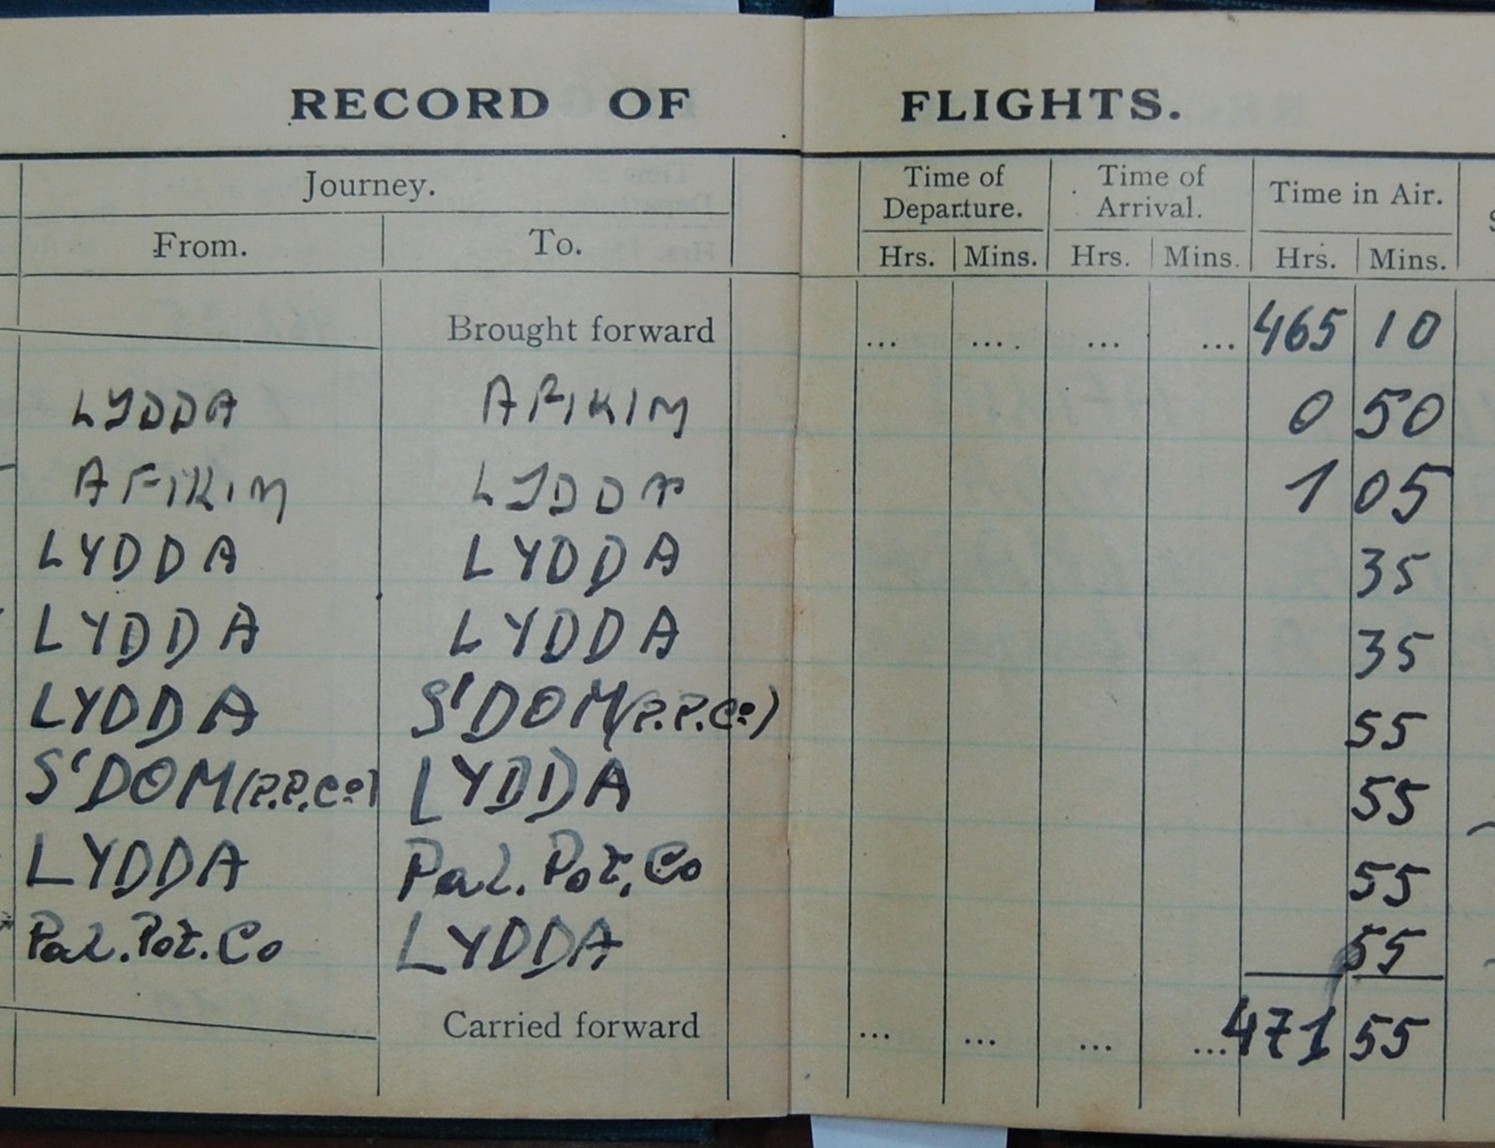 RECORD OF FLIGHTS.
Journey. Time of Departure. Time of Arrival. Time in Air.
From. To. Hrs. Mins. Hrs. Mins. Hrs. Mins.
Brought forward ... ... ... ... 465 10
LYDDA AFIKIM 0 50
AFIKIM LYDDA 1 05
LYDDA LYDDA 35
LYDDA LYDDA 35
LYDDA S'DOM (P.P.Co) 55
S'DOM (P.P.Co) LYDDA 55
LYDDA Pal. Pot. Co 55
Pal. Pot. Co LYDDA 55
Carried forward ... ... ... ... 471 55